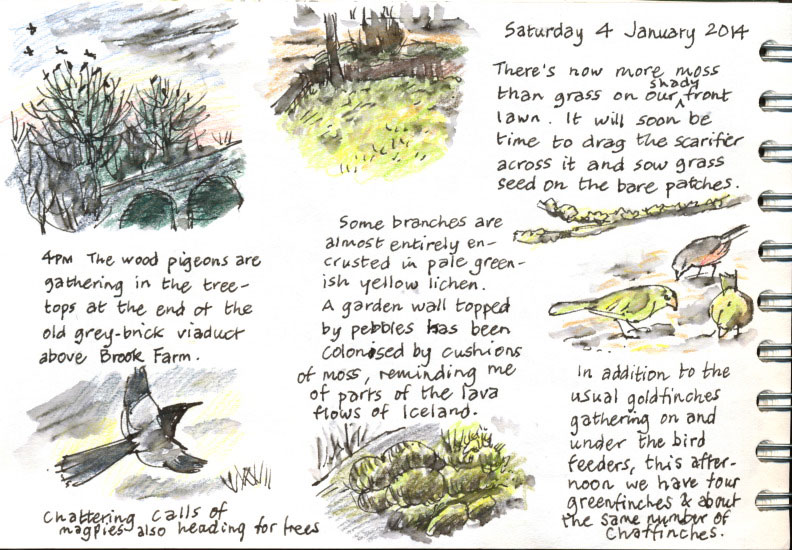 Saturday 4 January 2014
There's now more moss
than grass on our shady front
lawn. It will soon be
time to drag the scarifier
across it and sow grass
seed on the bare patches.
4PM The wood pigeons are
gathering in the tree-
tops at the end of the
old grey-brick viaduct
above Brook Farm.
Chattering calls of
magpies also heading for trees
Some branches are
almost entirely en-
crusted in pale green-
ish yellow lichen.
A garden wall topped
by pebbles has been
colonised by cushions
of moss, reminding me
of parts of the lava
flows of Iceland.
In addition to the
usual goldfinches
gathering on and
under the bird
feeders, this after-
noon we have four
greenfinches & about
the same number of
chaffinches.